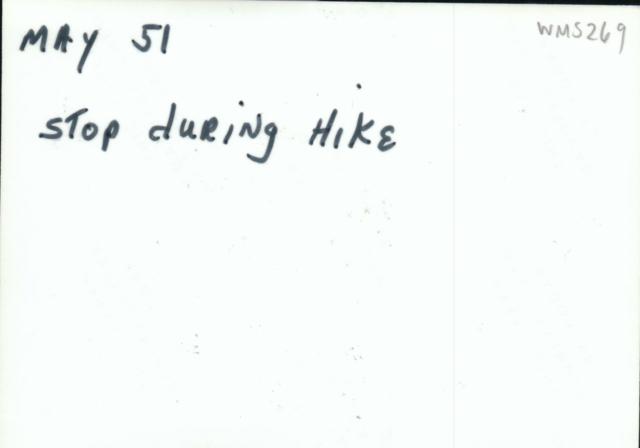 MAY 51
WMS269
STOP duRiNg HiKE